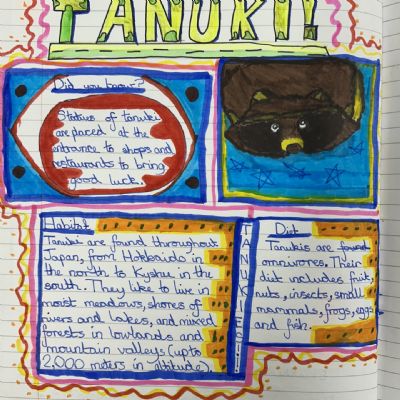 TANUKI!
Did you know?
Statues of tanuki
are placed at the
entrance to shops and
restaurants to bring
good luck.
Habitat
Tanuki are found throughout
Japan, from Hokkaido in
the north to Kyshu in the
south. They like to live in
moist meadows, shores of
rivers and lakes, and mixed
forests in lowlands and
mountain valleys (up to
2,000 meters in altitude)
TANUKIS!
Diet
Tanukis are found
omnivores. Their
diet includes fruit,
nuts, insects, small
mammals, frogs, eggs
and fish.